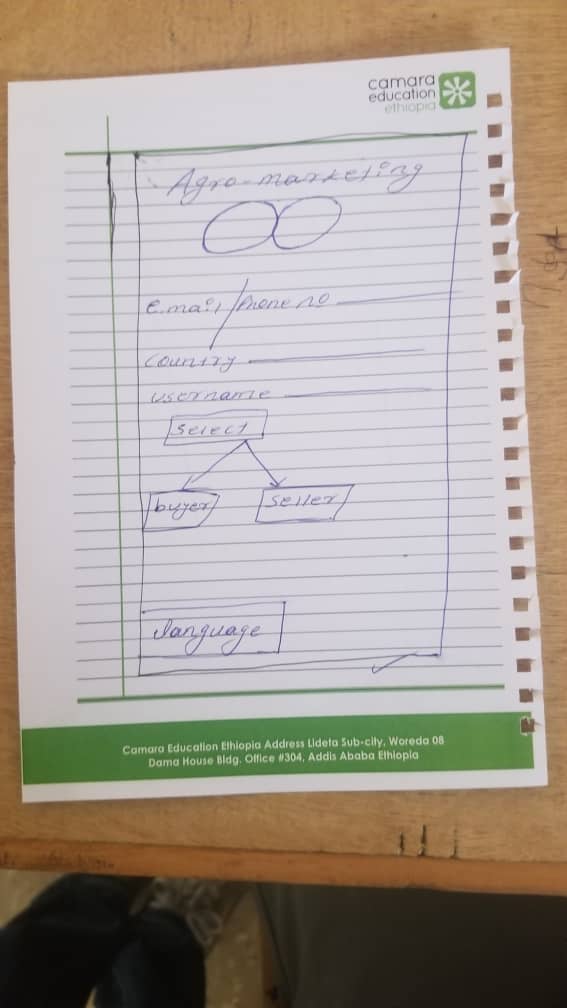 camara
education
ethiopia
Agro-marketing
E.mail/Phone no
country
username
select
buyer
seller
language
Camara Education Ethiopia Address Lideta Sub-city, Woreda 08
Dama House Bldg. Office #304, Addis Ababa Ethiopia